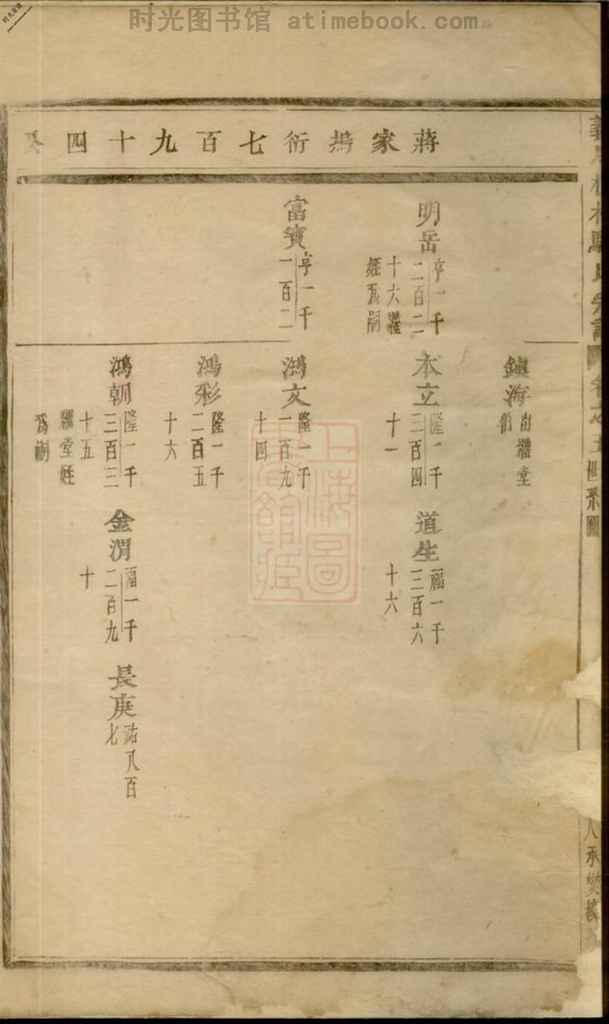 时光图书馆 - atimebook.com
蒋家塢衍七百九十四
明岳
亨一千
二百二
十六繼
姪爲嗣
富寶
亨一千
一百二
鎮海
出繼堂
伯
本立
隆一千
三百四
十一
鴻文
隆一千
一百九
十四
鴻彩
隆一千
二百五
十六
鴻朝
隆一千
三百三
十五
繼堂姪
爲嗣
道生
福一千
三百六
十六
金渭
福一千
二百九
十
長庚
祐八百
七